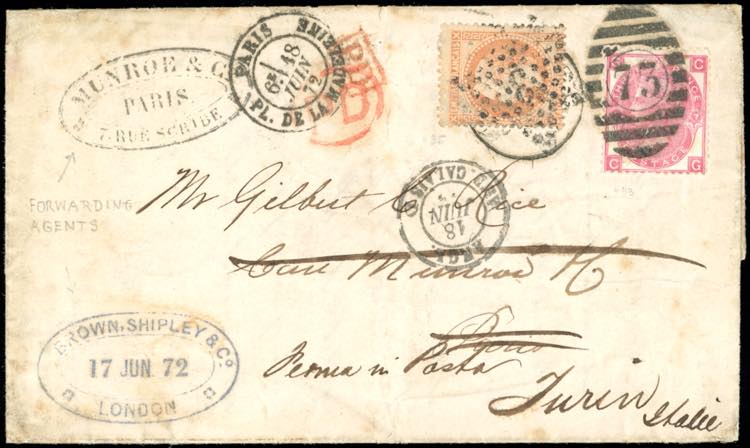 MUNROE & Co
PARIS
7. RUE SCRIBE
PARIS
18
JUIN
72
PL. DE LA MADELEINE
PD
73
C G
FORWARDING
AGENTS
CALAIS
18
JUIN
Mr Gilbert C Rice
Care Munroe
Paris
Ferma in Posta
Turin
Italie
BROWN, SHIPLEY & Co.
17 JUN. 72
LONDON